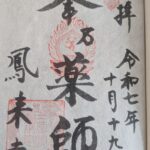 奉拝
令和七年
十月十九
万
薬師
鳳来寺